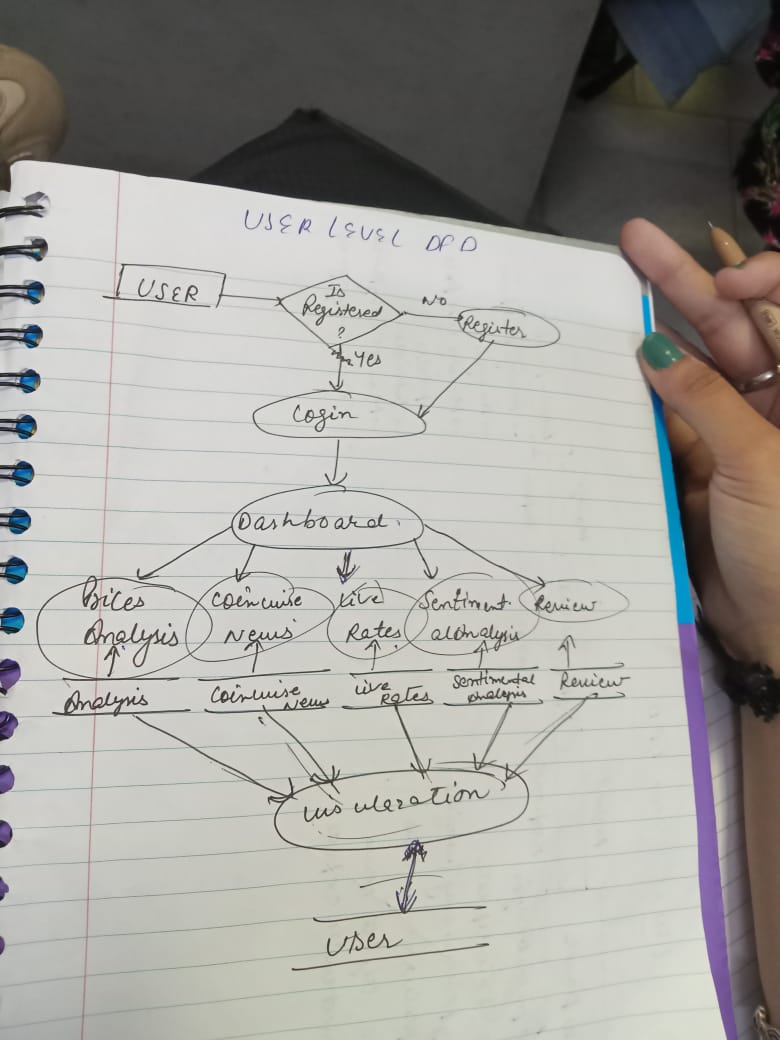 USER LEVEL DFD
USER
Is
Registered
?
NO
Register
Yes
Login
Dashboard.
Prices
Analysis
Coinwise
News
Live
Rates
Sentiment
alAnalysis
Review
Analysis
Coinwise News
Live
Rates
Sentimental
Analysis
Review
User